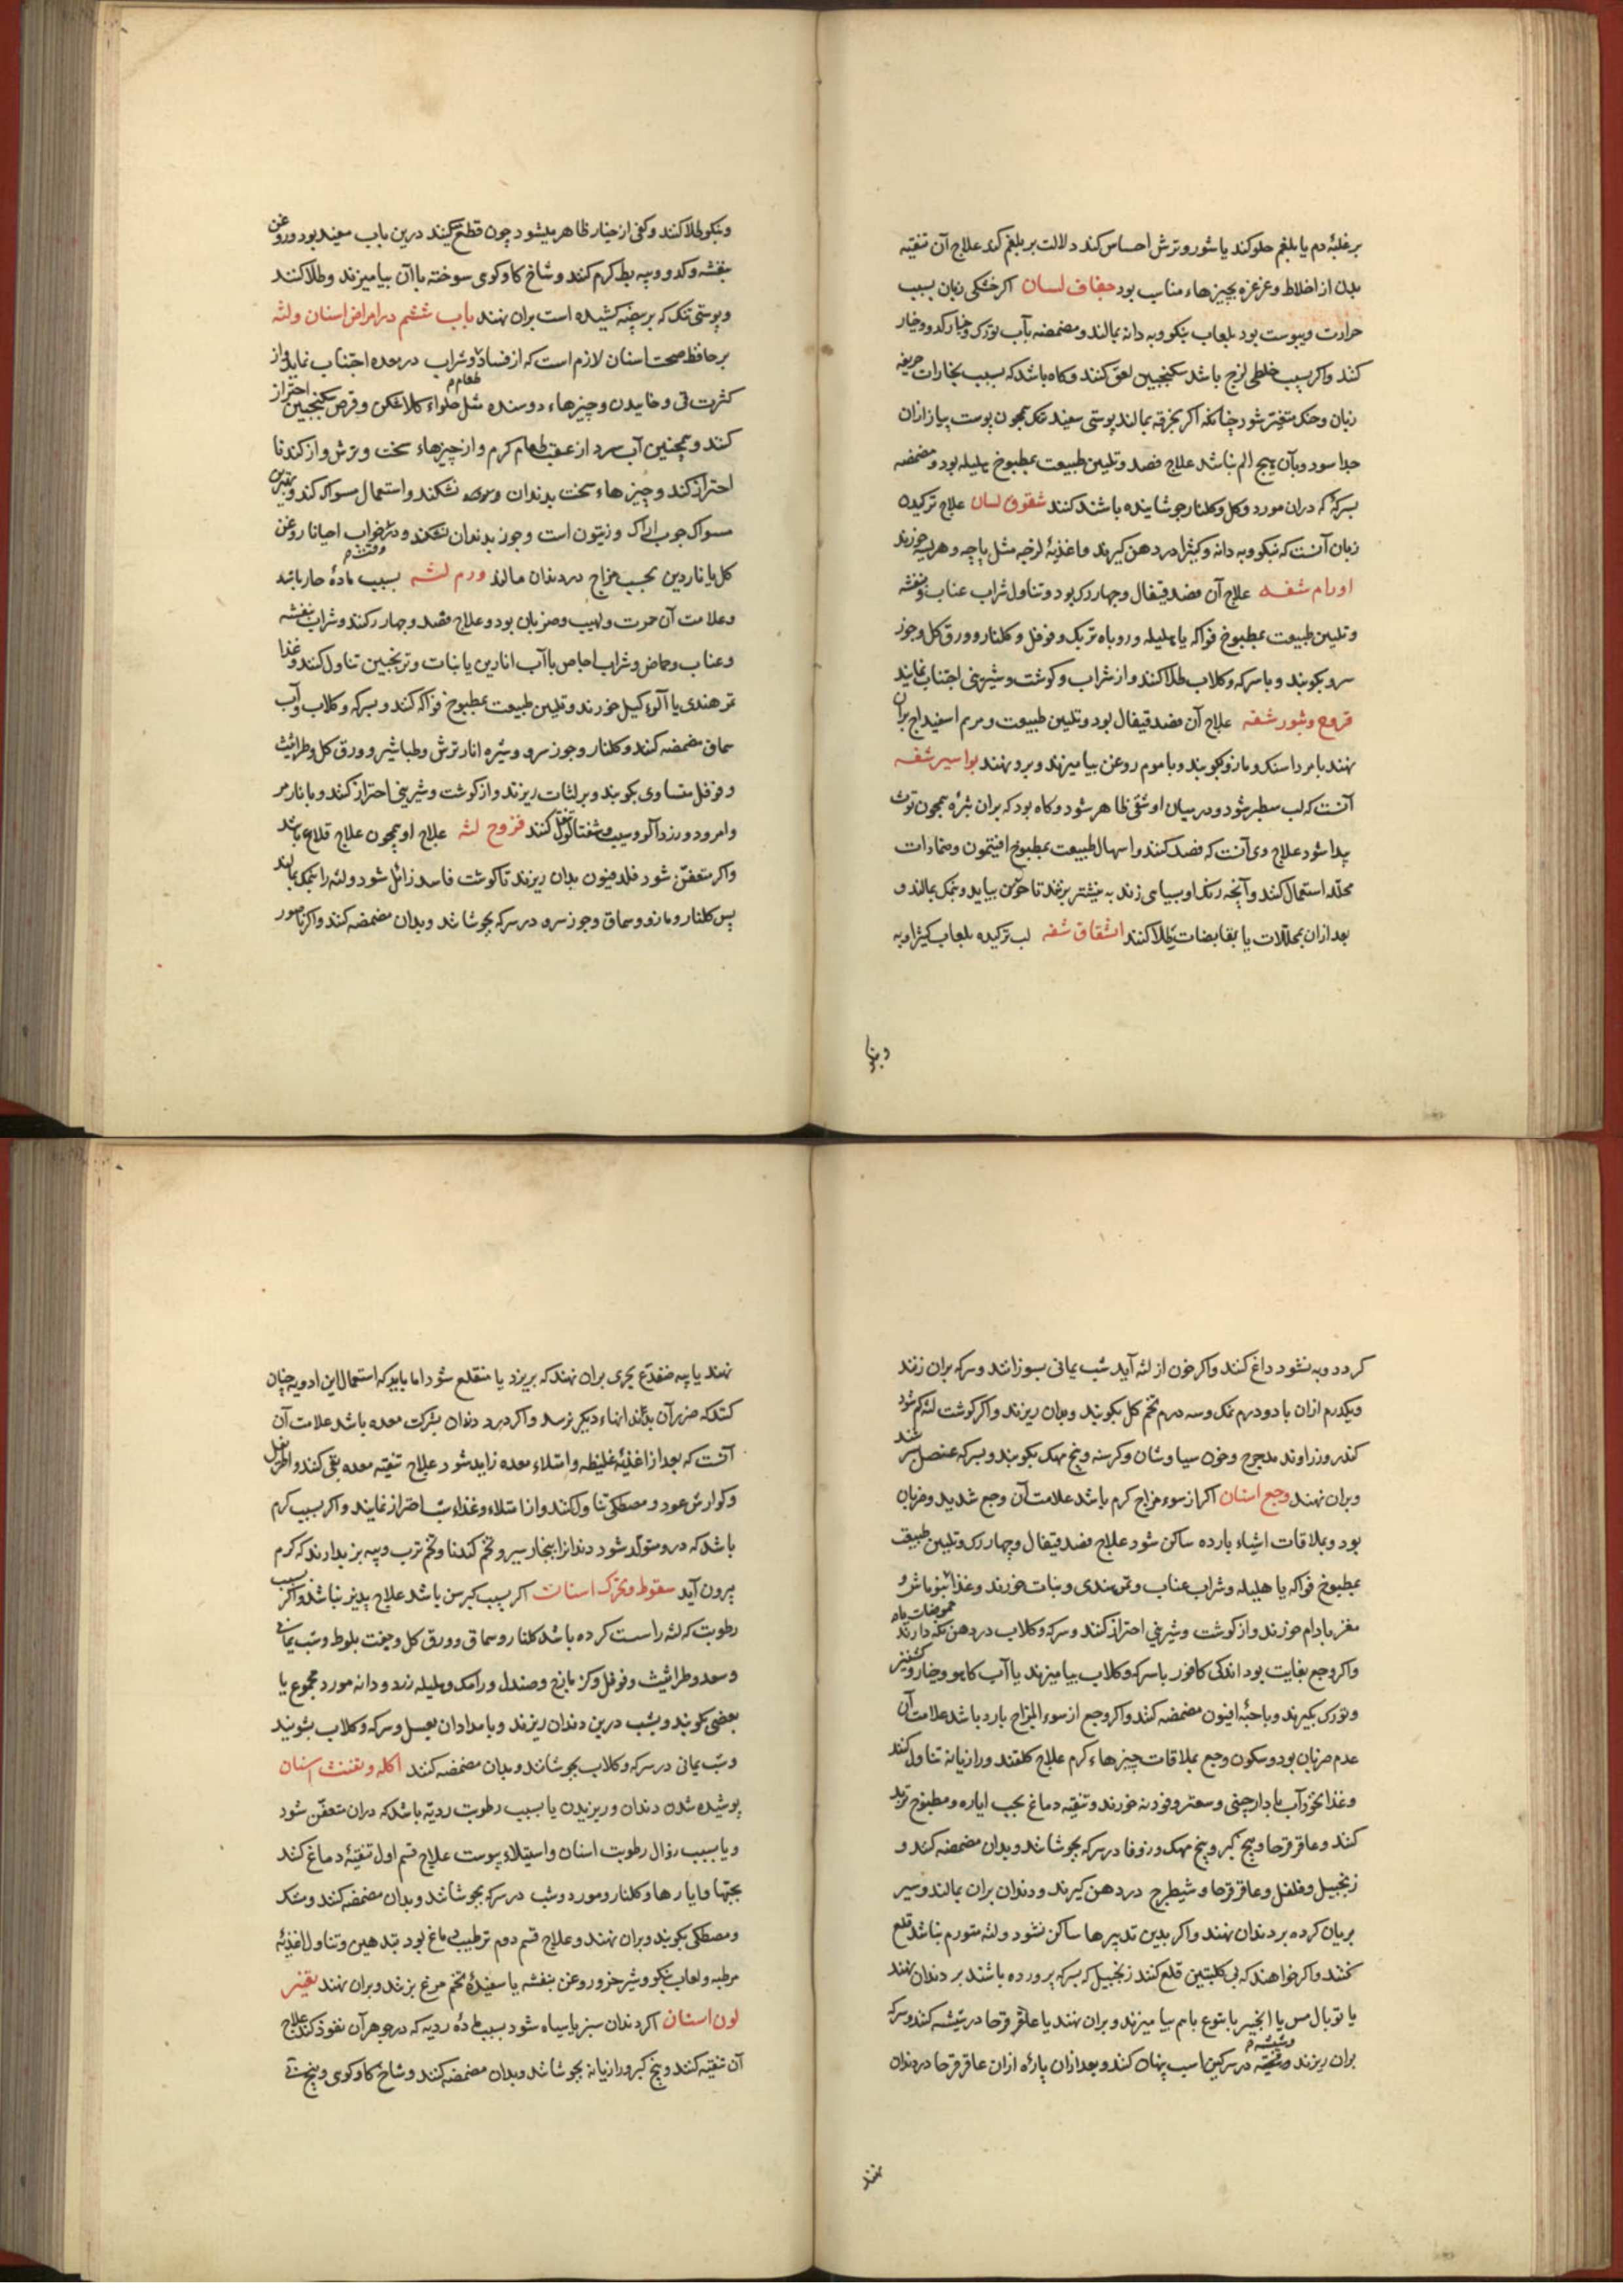 بر غلبهٔ دم یا بلغم حلو کند یا شور و ترش احساس کند دلالت بر بلغم کند علاج آن تنقیه
بدن از اخلاط و غرغره بچیزهاء مناسب بود جفاف لسان اکر خشکی زبان بسبب
حرارت و یبوست بود بلعاب بنکو و به دانه بمالند و مضمضه بآب تورک و خیار کدو و خیار
کند و اکر بسبب خلطی لزج باشد سکنجبین لعق کنند و کاه باشد که بسبب بخارات حریفه
زبان و حنک متغیر شود چنانکه اکر بخرقه بمالند پوستی سفید تنک همچون پوست پیاز ازان
جدا شود و بآن هیچ الم نباشد علاج فصد و تلیین طبیعت بمطبوخ هلیله بود و مضمضه
بسرکهٔ که دران مورد و کل و کلنار جوشانیده باشند کنند شقوق لسان علاج ترکیدن
زبان آنست که بنکو و به دانه و کثیرا در دهن کیرند و اغذیهٔ لزجه مثل پاچه و هریسه خورند
اورام شفه علاج آن فصد قیفال و چهار رک بود و تناول شراب عناب و بنفشه
و تلیین طبیعت بمطبوخ فواکه یا هلیله و روباه تربک و فوفل و کلنار و ورق کل و جوز
سرو بکوبند و با سرکه و کلاب طلا کنند و از شراب و کوشت و شیرینی اجتناب نمایند
قروح و بثور شفه علاج آن فصد قیفال بود و تلیین طبیعت و مرهم اسفیداج بران
نهند یا مرداسنک و مازو بکوبند و با موم روغن بیامیزند و برو نهند بواسیر شفه
آنست که لب سطبر شود و در میان او شقی ظاهر شود و کاه بود که بران بثره همچون توث
پیدا شود علاج وی آنست که فصد کنند و اسهال طبیعت بمطبوخ افتیمون و ضمادات
محلله استعمال کنند و آنچه رنک او بسیاهی زند به نیشتر بزنند تا خون بیاید و بنمک بمالند و
بعد ازان بمحللات یا بقابضات طلا کنند انشقاق شفه لب ترکیده بلعاب کثیرا و به
و بنکو
و بنکو طلا کنند و کفی از خیار ظاهر میشود چون قطع کنند درین باب مفید بود و روغن
بنفشه و کدو و پیه بط کرم کنند و شاخ کاو کوی سوخته باآن بیامیزند و طلا کنند
و پوستی تنک که بر بیضه کشیده است بران نهند باب ششم در امراض اسنان و لثه
بر حافظ صحت اسنان لازم است که از فساد طعام و شراب در معده اجتناب نماید و از
کثرت قی و خاییدن و چیزهاء دوسنده مثل حلواء کلاشکن و قرص سکنجبین احتراز
کنند و همچنین آب سرد از عقب طعام کرم و از چیزهاء سخت و ترش و از کندنا
احتراز کند و چیزهاء سخت بدندان نشکند و استعمال مسواک کند و بهترین
مسواک چوب اراک و زیتون است و جوز بدندان نشکند و در وقت خواب احیانا روغن
کل یا ناردین بحسب مزاج در دندان مالد ورم لثه بسبب مادهٔ حار باشد
و علامت آن حمرت و لهیب و ضربان بود و علاج فصد و چهار رک کنند و شراب بنفشه
و عناب و حماض و شراب اجاص باآب انارین یا نبات و ترنجبین تناول کنند و غذا
تمر هندی یا آلوء کیل خورند و تلیین طبیعت بمطبوخ فواکه کنند و بسرکه و کلاب و آب
سماق مضمضه کنند و کلنار و جوز سرو و شیره انار ترش و طباشیر و ورق کل و طراثیث
و فوفل مساوی بکوبند و بر لثات ریزند و از کوشت و شیرینی احتراز کنند و با نار مر
و امرود و زردآلو و سیب و شفتالو تنقل کنند قروح لثه علاج او همچون علاج قلاع باشد
و اکر متعفن شود فلدفیون بدان ریزند تا کوشت فاسد زائل شود و لثه را بنمک بمالند
پس کلنار و مازو و سماق و جوز سرو در سرکه بجوشانند و بدان مضمضه کنند و اکر ناصور
کردد و به نشود داغ کنند و اکر خون از لثه آید شب یمانی بسوزانند و سرکه بران زنند
و یکدرم ازان با دو درم نمک و سه درم تخم کل بکوبند و بدان ریزند و اکر کوشت لثه کم شود
کندر و زراوند مدحرج و خون سیاوشان و کرسنه و بیخ مهک بکوبند و بسرکه عنصل سرشند
و بران نهند وجع اسنان اکر از سوء مزاج کرم باشد علامت آن وجع شدید و ضربان
بود و بملاقات اشیاء بارده ساکن شود علاج فصد قیفال و چهار رک و تلیین طبیعت
بمطبوخ فواکه یا هلیله و شراب عناب و تمر هندی و نبات خورند و غذا بنو ماش و
مغز بادام خورند و از کوشت و شیرینی احتراز کنند و سرکه و کلاب در دهن نکه دارند
و اکر وجع بغایت بود اندکی کافور با سرکه و کلاب بیامیزند یا آب کاهو و خیار و کشنیز
و تورک بکیرند و با حبهٔ افیون مضمضه کنند و اکر وجع از سوء المزاج بارد باشد علامت آن
عدم ضربان بود و سکون وجع بملاقات چیزهاء کرم علاج کلقند و رازیانه تناول کنند
و غذا نخودآب با دارچینی و سعتر و فودنه خورند و تنقیه دماغ بحب ایاره و مطبوخ تربد
کنند و عاقرقرحا و بیخ کبر و بیخ مهک و زوفا در سرکه بجوشانند و بدان مضمضه کنند و
زنجبیل و فلفل و عاقرقرحا و شیطرج در دهن کیرند و دندان بران بمالند و سیر
بریان کرده بر دندان نهند و اکر بدین تدبیرها ساکن نشود و لثه متورم نباشد قلع
کنند و اکر خواهند که بی کلبتین قلع کنند زنجبیل که بسرکه پرورده باشند بر دندان نهند
یا توبال مس یا انجیر با یتوع باهم بیامیزند و بران نهند یا عاقرقرحا در شیشه کنند و سرکه
بران ریزند و شیشه در سرکین اسب پنهان کنند و بعد ازان پارهٔ ازان عاقرقرحا در دندان
نهند
نهند یا پیه ضفدع بحری بران نهند که بریزد یا منقلع شود اما باید که استعمال این ادویه چنان
کنند که ضرر آن بدندانهاء دیکر نرسد و اکر درد دندان بشرکت معده باشد علامت آن
آنست که بعد از اغذیهٔ غلیظه و امتلاء معده زاید شود علاج تنقیه معده بقی کنند و اطریفل
و کوارش عود و مصطکی تناول کنند و از امتلاء و غذاء شب احتراز نمایند و اکر بسبب کرم
باشد که درو متولد شود دندانرا ببخار سیر و تخم کندنا و تخم ترب و پیه بز بدارند که کرم
بیرون آید سقوط و تحرک اسنان اکر بسبب کبر سن باشد علاج پذیر نباشد و اکر بسبب
رطوبت که لثه را سست کرده باشد کلنار و سماق و ورق کل و جفت بلوط و شب یمانی
و سعد و طراثیث و فوفل و کزمازج و صندل و رامک و هلیله زرد و دانه مورد مجموع یا
بعضی بکوبند و بشب درین دندان ریزند و بامدادان بعسل و سرکه و کلاب بشویند
و شب یمانی در سرکه و کلاب بجوشانند و بدان مضمضه کنند اکله و تفتت اسنان
پوشیده شدن دندان و ریزیدن یا بسبب رطوبت ردیه باشد که دران متعفن شود
و یا بسبب زوال رطوبت اسنان و استیلاء یبوست علاج قسم اول تنقیهٔ دماغ کنند
بحبها و ایارها و کلنار و مورد و شب در سرکه بجوشانند و بدان مضمضه کنند و سک
و مصطکی بکوبند و بران نهند و علاج قسم دوم ترطیب دماغ بود بتدهین و تناول اغذیهٔ
مرطبه و لعاب بنکو و شیر خر و روغن بنفشه یا سفیدهٔ تخم مرغ بزنند و بران نهند تغیر
لون اسنان اکر دندان سبز یا سیاه شود بسبب مادهٔ ردیه که در جوهر آن نفوذ کند علاج
آن تنقیه کنند و بیخ کبر و رازیانه بجوشانند و بدان مضمضه کنند و شاخ کاو کوی و بیخ نی